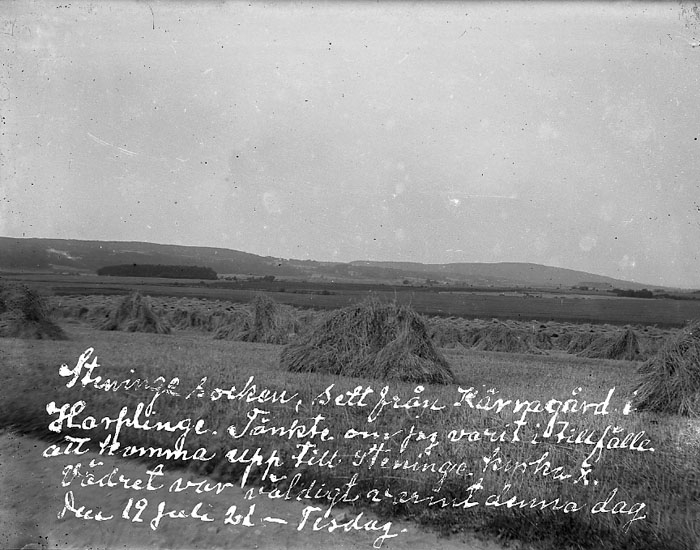 Steninge socken, sett från Kärragård i
Harplinge. Tänkte om jag varit i tillfälle
att komma upp till Steninge kyrka x.
Vädret var väldigt varmt denna dag
Den 19 Juli 21 – Tisdag.